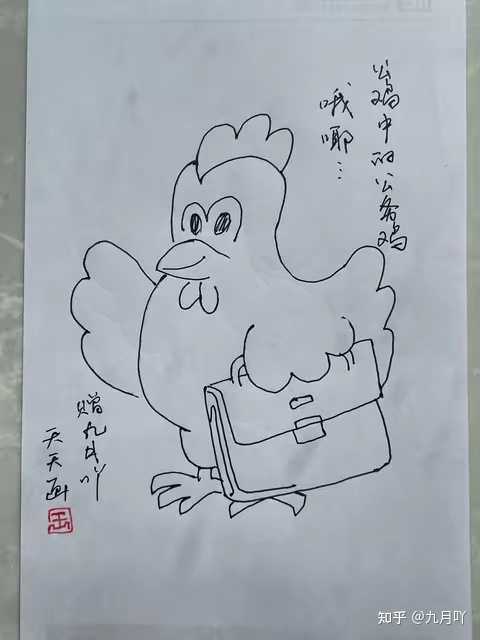 公鸡中的公务鸡
哦耶…
赠九月吖
天天画
玉
知乎 @九月吖